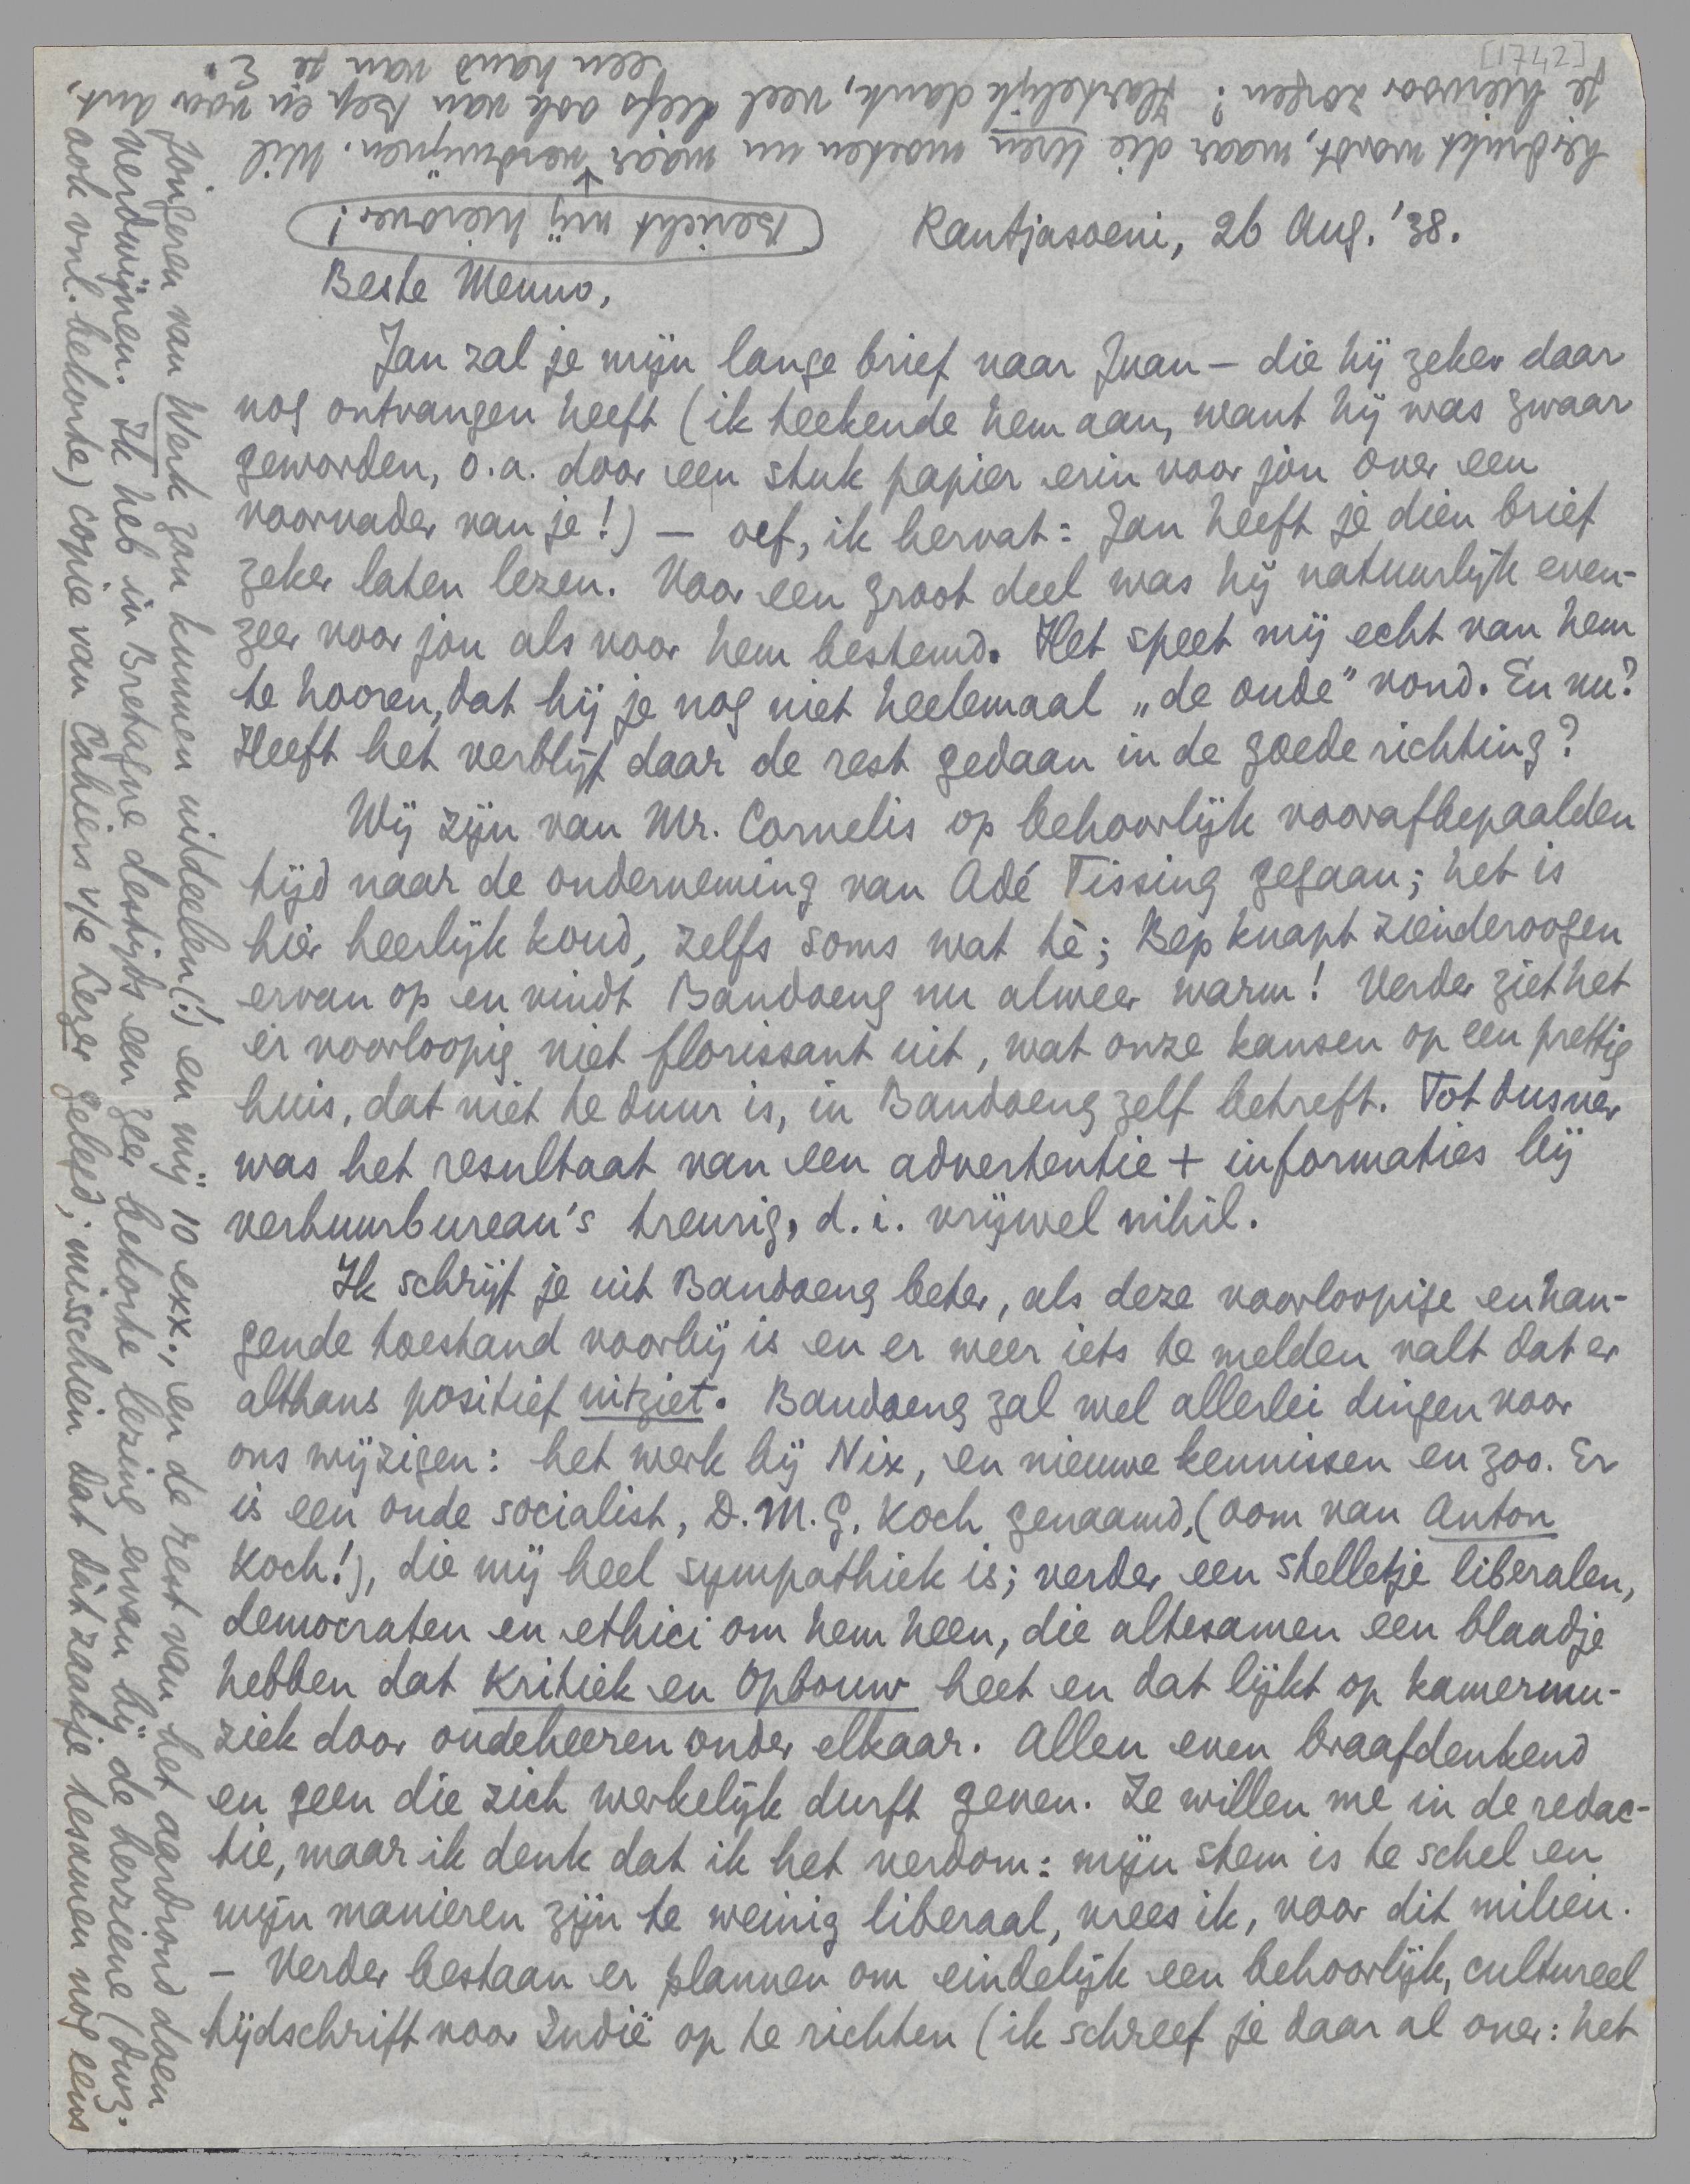 [1742]
Rantjasoeni, 26 Aug. '38.
Beste Menno,
Jan zal je mijn lange brief naar Juan — die hij zeker daar
nog ontvangen heeft (ik teekende hem aan, want hij was zwaar
geworden, o.a. door een stuk papier erin voor jou over een
voorvader van je!) — oef, ik hervat: Jan heeft je dien brief
zeker laten lezen. Voor een groot deel was hij natuurlijk even-
zeer voor jou als voor hem bestemd. Het speet mij echt van hem
te hooren, dat hij je nog niet heelemaal „de oude” vond. En nu?
Heeft het verblijf daar de rest gedaan in de goede richting?
Wij zijn van Mr. Cornelis op behoorlijk voorafbepaalden
tijd naar de onderneming van Adé Tissing gegaan; het is
hier heerlijk koud, zelfs soms wat tè; Bep knapt zienderoogen
ervan op en vindt Bandoeng nu alweer warm! Verder ziet het
er voorloopig niet florissant uit, wat onze kansen op een prettig
huis, dat niet te duur is, in Bandoeng zelf betreft. Tot dusver
was het resultaat van een advertentie + informaties bij
verhuurbureau's treurig, d.i. vrijwel nihil.
Ik schrijf je uit Bandoeng beter, als deze voorloopige en han-
gende toestand voorbij is en er weer iets te melden valt dat er
althans positief uitziet. Bandoeng zal wel allerlei dingen voor
ons wijzigen: het werk bij Nix, en nieuwe kennissen en zoo. Er
is een oude socialist, D.M.G. Koch genaamd, (oom van Anton
Koch!), die mij heel sympathiek is; verder een stelletje liberalen,
democraten en ethici om hem heen, die altesamen een blaadje
hebben dat Kritiek en Opbouw heet en dat lijkt op kamermu-
ziek door oudeheeren onder elkaar. Allen even braafdenkend
en geen die zich werkelijk durft geven. Ze willen me in de redac-
tie, maar ik denk dat ik het verdom: mijn stem is te schel en
mijn manieren zijn te weinig liberaal, vrees ik, voor dit milieu.
— Verder bestaan er plannen om eindelijk een behoorlijk, cultureel
tijdschrift voor Indië op te richten (ik schreef je daar al over: het
jongeren van Werk zou kunnen uitdeelen(!) en mij 10 exx., en de rest van het aardrond doen
verdwijnen. Ik heb in Bretagne destijds een zeer bekorte lezing ervan bij de herziene (dwz.
ook vnl. bekorte) copie van Cahiers v/e Lezer gelegd; misschien dat dàt zaakje tesamen nog eens
herdrukt wordt, maar die uren moeten nu maar verdwijnen. Wil
je hiervoor zorgen? Hartelijk dank, veel liefs ook van Bep en voor Ant,
een hand van je E.
Bericht mij hierover!